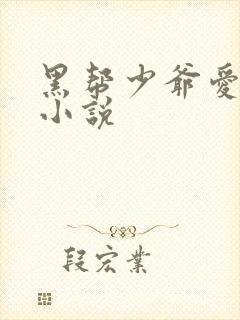 黑帮少爷爱
小說
段宏業